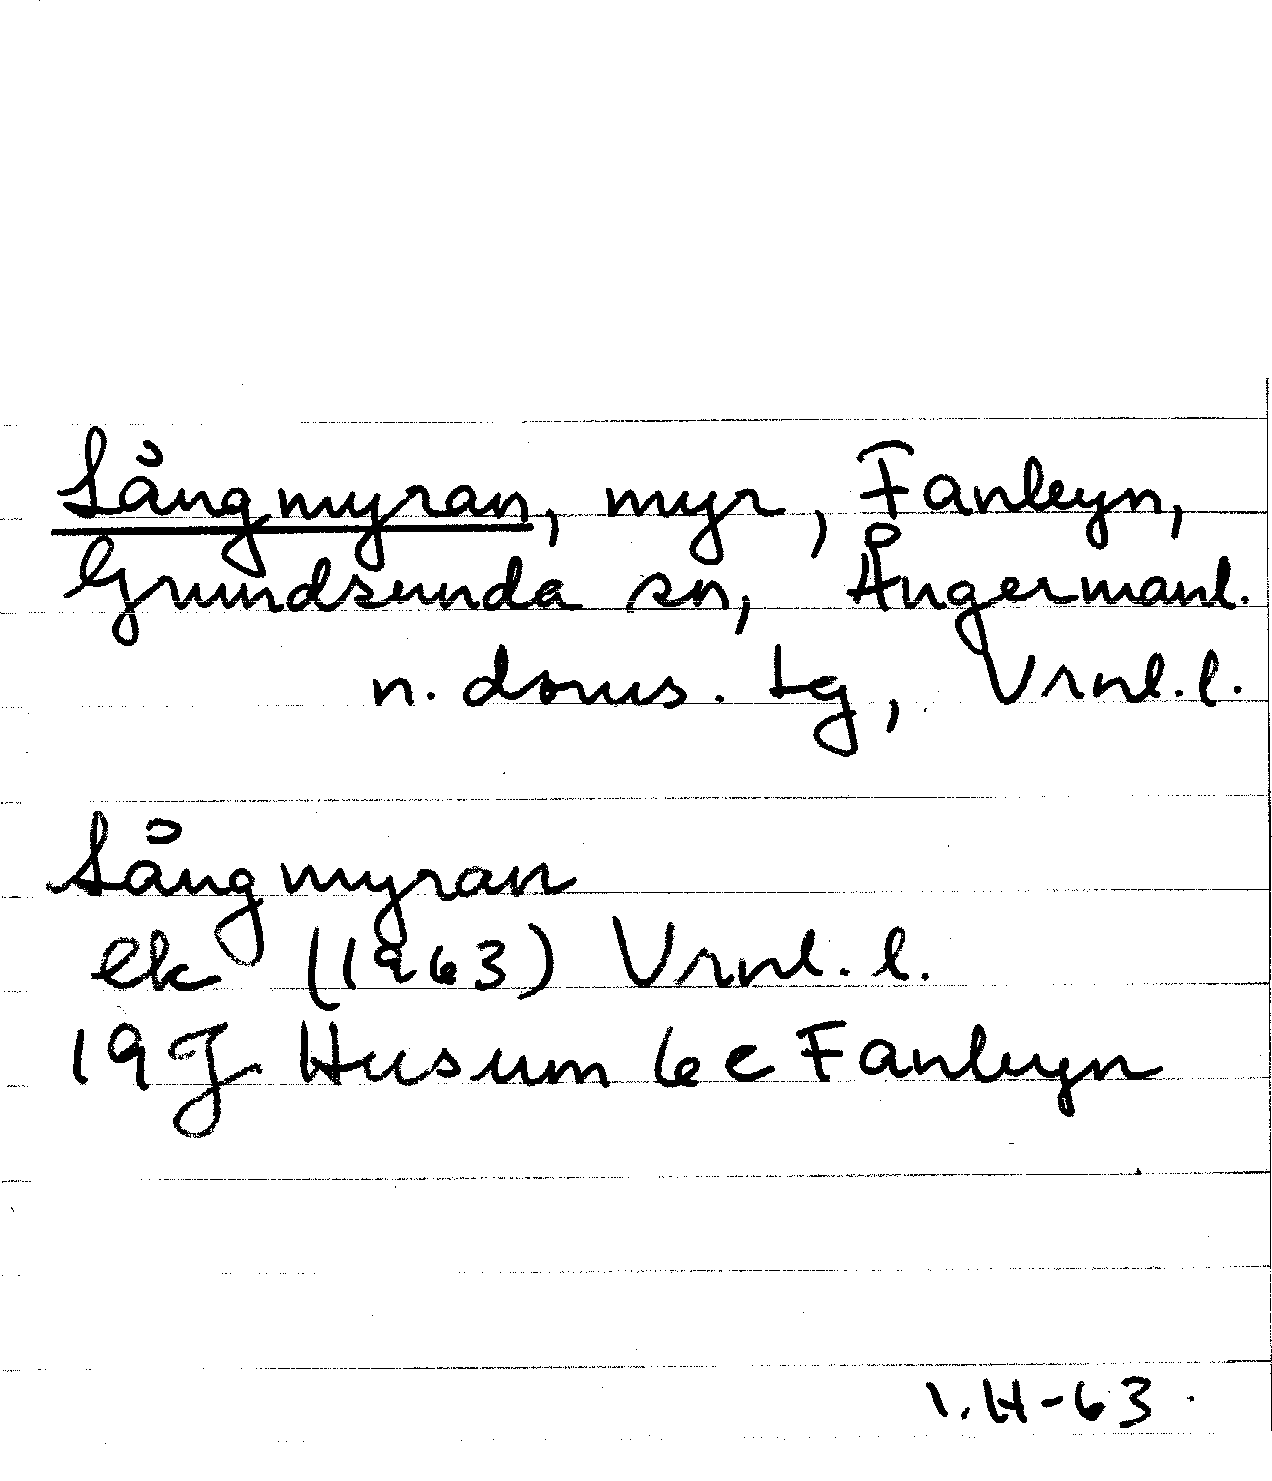 Långmyran, myr, Fanbyn,
Grundsunda sn, Ångermanl.
n. doms. tg, Vrnl.l.
Långmyran
ek (1963) Vrnl. l.
19 J Husum 6c Fanbyn
I.H-63